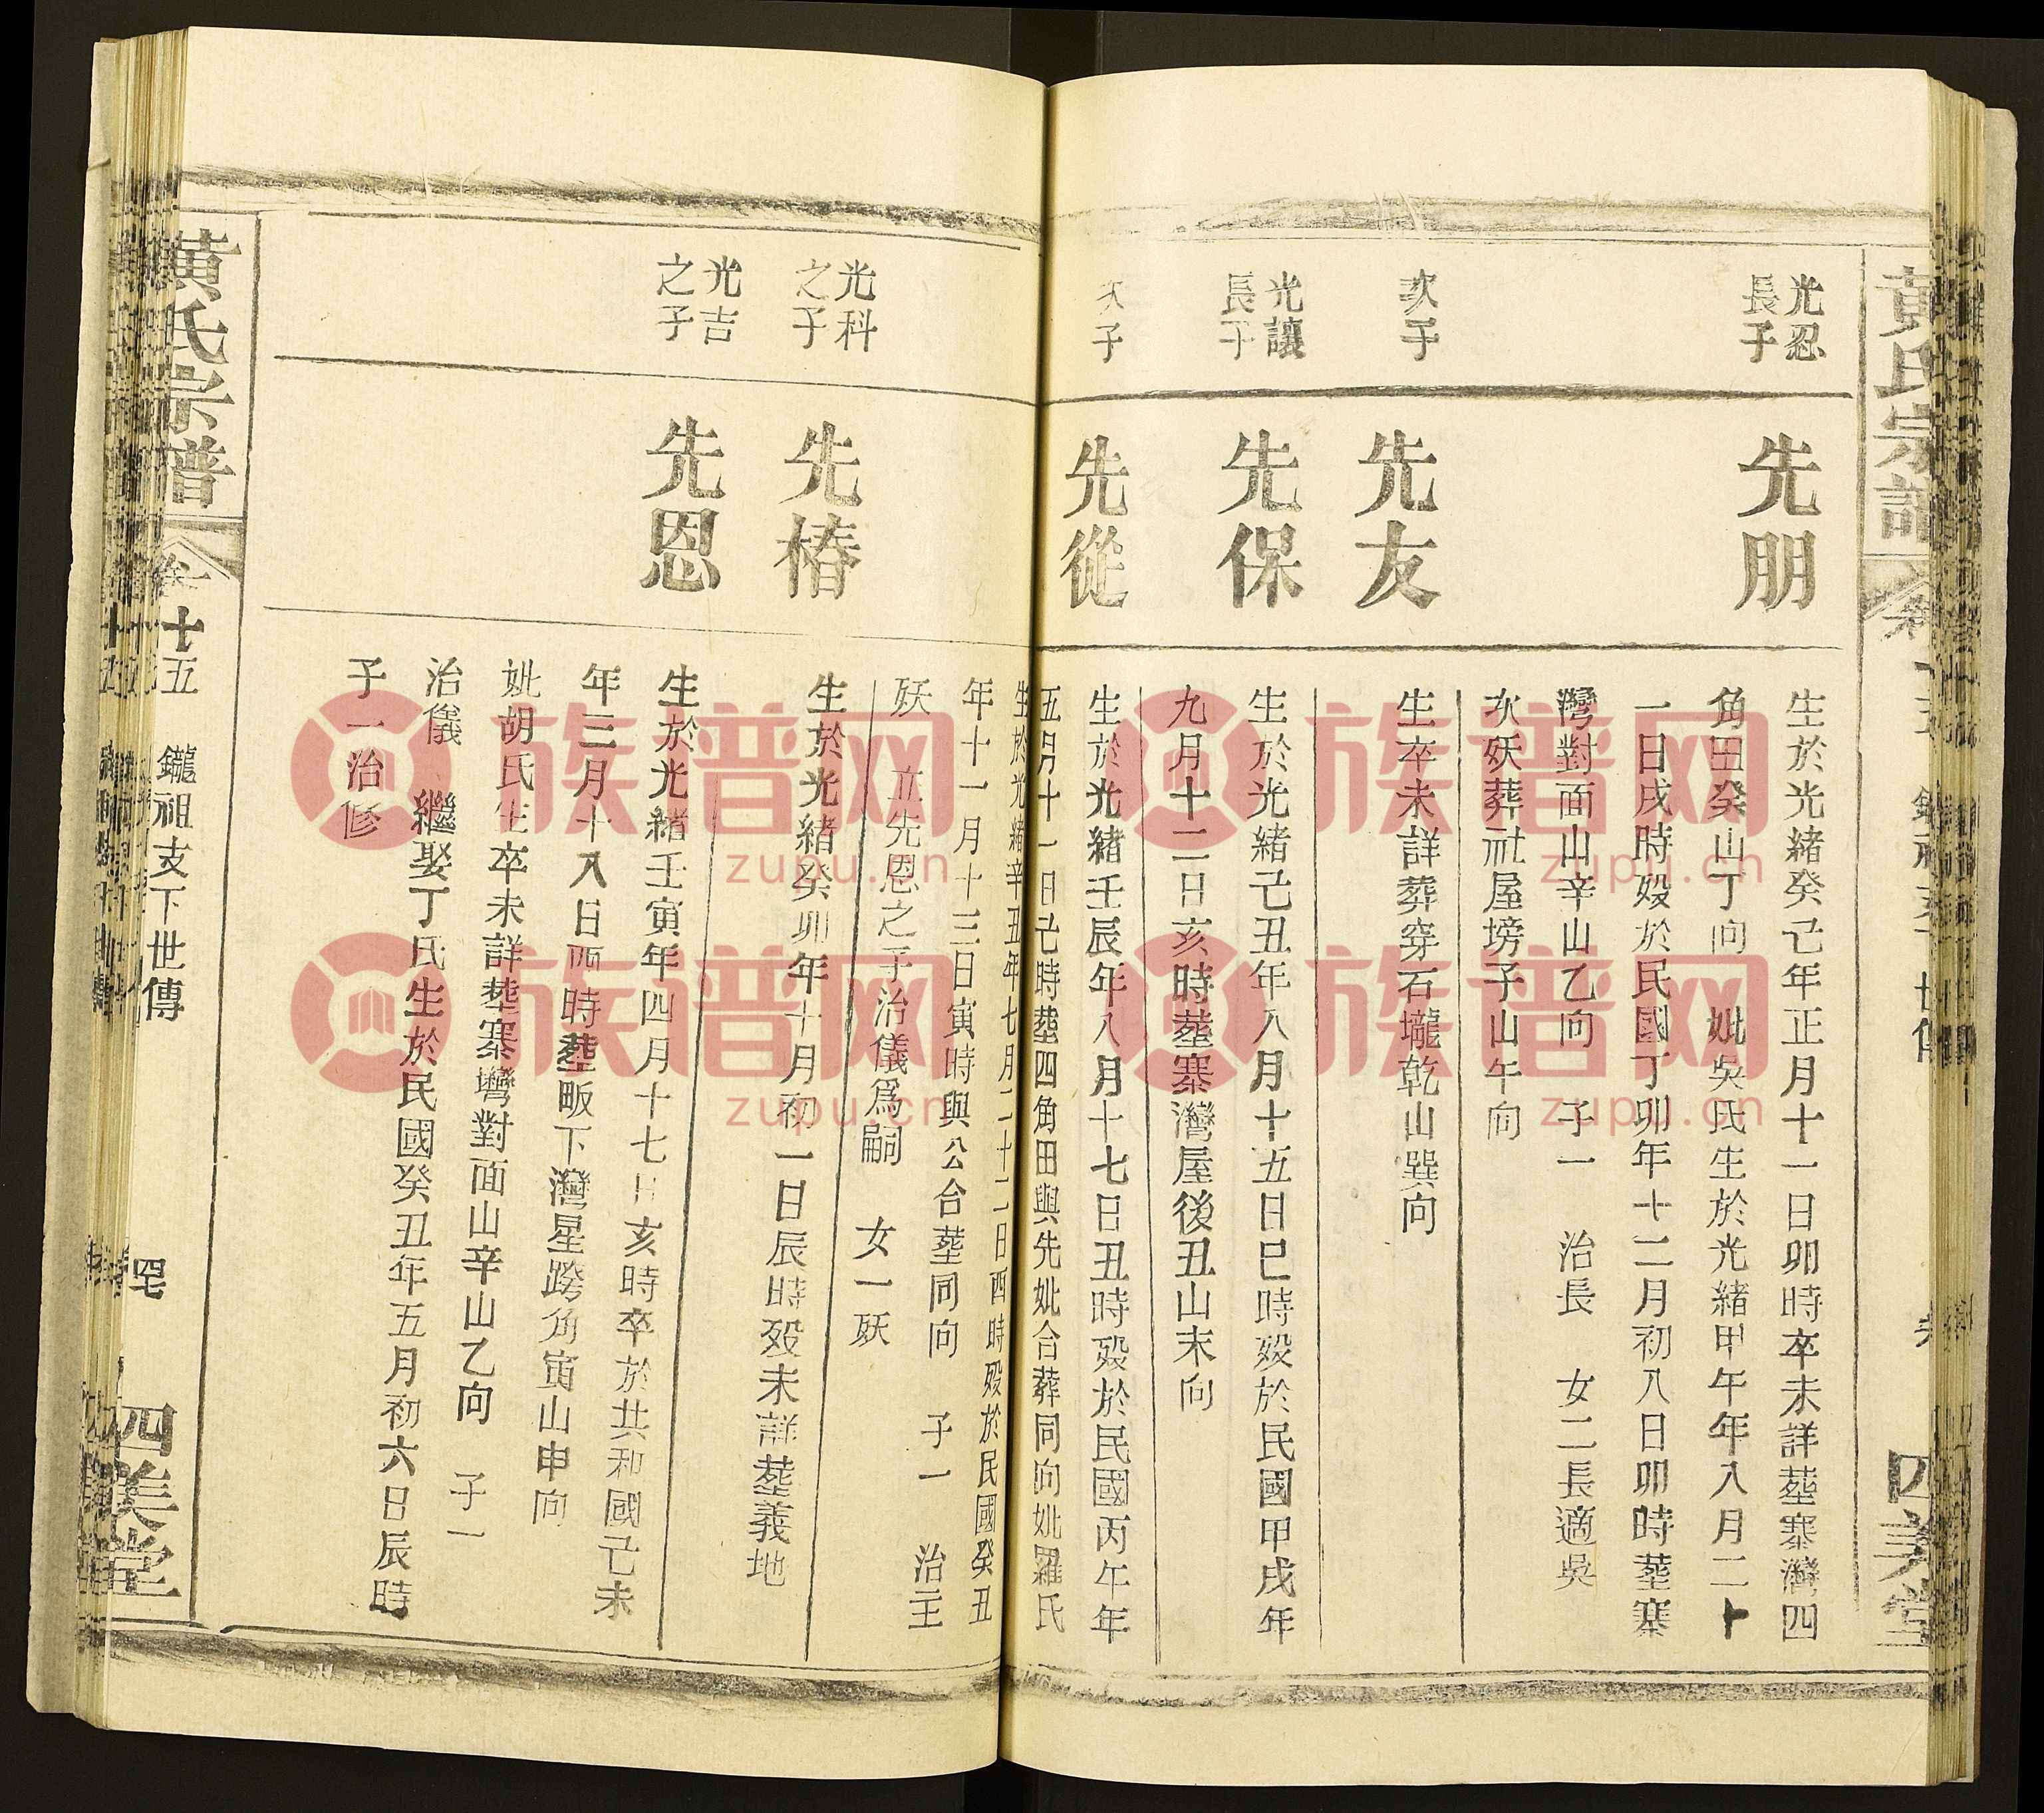 黃氏宗譜
四美堂
光忍
長子
先朋
生於光緒癸己年正月十一日卯時卒未詳塟寨灣四
角田癸山丁向 妣吳氏生於光緒甲午年八月二十
一日戌時歿於民國丁卯年十二月初八日卯時塟寨
灣對面山辛山乙向 子一 治長 女二長適吳
次妖葬社屋塝子山午向
次子
先友
生卒未詳葬穿石壠乾山巽向
光讓
長子
先保
生於光緒己丑年八月十五日巳時歿於民國甲戌年
九月十二日亥時塟寨灣屋後丑山未向
次子
先從
生於光緒壬辰年八月十七日丑時歿於民國丙午年
五月十一日己時塟四角田與先妣合葬同向妣羅氏
生於光緒辛丑年七月二十二日酉時歿於民國癸丑
年十一月十三日寅時與公合塟同向 子一 治主
妖 立先恩之子治儀爲嗣 女一妖
光科
之子
先椿
生於光緒癸卯年十月初一日辰時歿未詳塟義地
光吉
之子
先恩
生於光緒壬寅年四月十七日亥時卒於共和國己未
年三月十八日酉時塟畈下灣星跨角寅山申向
妣胡氏生卒未詳塟寨灣對面山辛山乙向 子一
治儀 繼娶丁氏生於民國癸丑年五月初六日辰時
子一治修
黃氏宗譜
卷十五 鑨祖支下世傳
四美堂
族谱网
zupu.cn
族谱网
zupu.cn
族谱网
zupu.cn
族谱网
zupu.cn